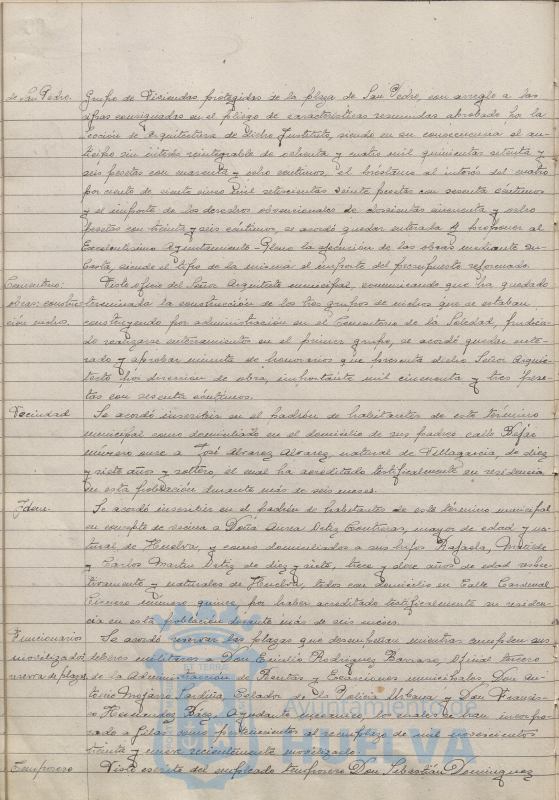 de San Pedro. Grupo de Viviendas protegidas de la plaza de San Pedro, con arreglo a las
cifras consignadas en el pliego de características resumidas aprobado por la
Sección de Arquitectura de dicho Instituto, siendo en su consecuencia el an-
ticipo sin interés reintegrable de ochenta y cuatro mil quinientas setenta y
seis pesetas con cuarenta y ocho céntimos, el préstamo al interés del cuatro
por ciento de ciento cinco mil setecientas veinte pesetas con sesenta céntimos
y el importe de los derechos obvencionales de doscientas cincuenta y ocho
pesetas con treinta y seis céntimos, se acordó quedar enterada y proponer al
Excelentísimo Ayuntamiento-Pleno la ejecución de las obras mediante su-
basta, siendo el tipo de la misma el importe del presupuesto reformado.
Cementerio: Visto oficio del Señor Arquitecto municipal, comunicando que ha quedado
obras: construc- terminada la construcción de los tres grupos de nichos que se estaban
ción nichos. construyendo por administración en el Cementerio de la Soledad, pudien-
do realizarse enterramientos en el primer grupo, se acordó quedar ente-
rado y aprobar minuta de honorarios que presenta dicho Señor Arqui-
tecto por dirección de obra, importante mil cincuenta y tres pese-
tas con sesenta céntimos.
Vecindad Se acordó inscribir en el padrón de habitantes de este término
municipal como domiciliado en el domicilio de sus padres calle Béjar
número once a José Alvarez Alvarez, natural de Villagarcía, de diez
y siete años y soltero, el cual ha acreditado testificalmente su residencia
en esta población durante más de seis meses.
Idem. Se acordó inscribir en el padrón de habitantes de este término municipal
en concepto de vecina a Doña Aurea Ortiz Contreras, mayor de edad y na-
tural de Huelva, y como domiciliados a sus hijos Rafaela,
y Carlos Martin Ortiz de diez y siete, trece y doce años de edad respec-
tivamente y naturales de Huelva, todos con domicilio en Calle Cardenal
Cisneros número quince, por haber acreditado testificalmente su residen-
cia en esta población durante más de seis meses.
Funcionarios Se acordó reservar las plazas que desempeñan mientras cumplen sus
movilizados: deberes militares a Don Emilio Rodríguez Barraso, Oficial tercero
reserva de plazas de la Administración de Rentas y Exacciones municipales, Don An-
tonio Mojarro Pardiña, Celador de la Policía Urbana y Don Francis-
co Hernández Báez, Ayudante mecánico, los cuales se han incorpo-
rado a filas como pertenecientes al reemplazo de mil novecientos
treinta y nueve recientemente movilizado.
Temporero Visto escrito del empleado temporero Don Sebastián Dominguez
Ayuntamiento de
HUELVA